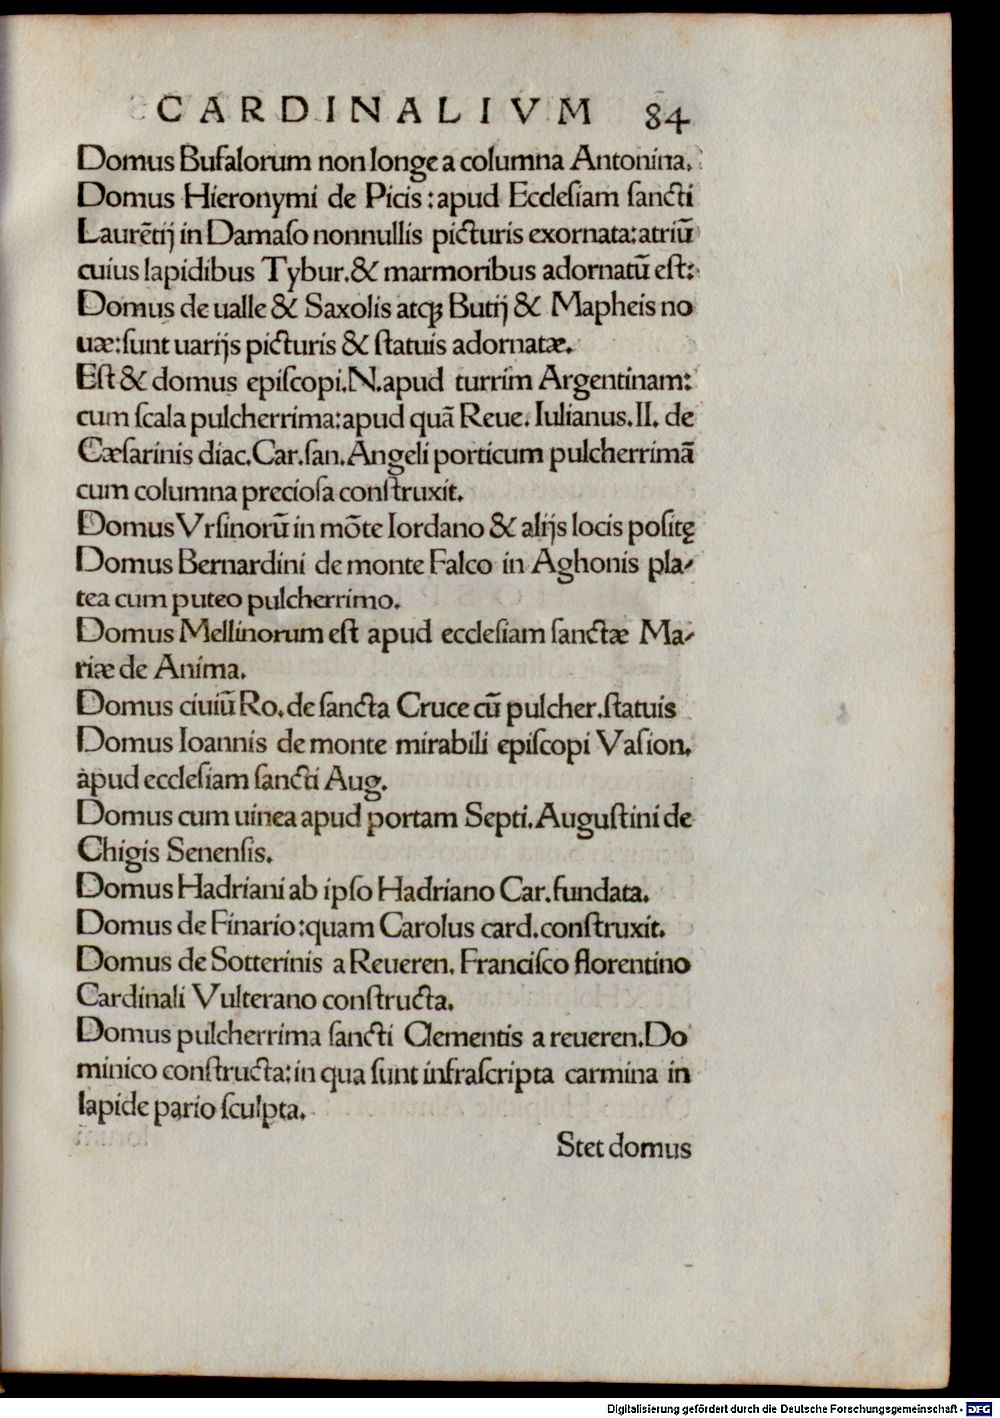 CARDINALIVM 84
Domus Bufalorum non longe a columna Antonina.
Domus Hieronymi de Picis : apud Ecclesiam sancti
Laurētij in Damaso nonnullis picturis exornata: atriū
cuius lapidibus Tybur. & marmoribus adornatū est:
Domus de ualle & Saxolis atqꝫ Butij & Mapheis no
uæ: sunt uarijs picturis & statuis adornatæ.
Est & domus episcopi. N. apud turrim Argentinam:
cum scala pulcherrima: apud quā Reue. Iulianus. II. de
Cæsarinis diac. Car. san. Angeli porticum pulcherrimā
cum columna preciosa construxit.
Domus Vrsinorū in mōte Iordano & alijs locis positę
Domus Bernardini de monte Falco in Aghonis pla-
tea cum puteo pulcherrimo.
Domus Mellinorum est apud ecclesiam sanctæ Ma-
riæ de Anima.
Domus ciuiū Ro. de sancta Cruce cū pulcher. statuis
Domus Ioannis de monte mirabili episcopi Vasion.
apud ecclesiam sancti Aug.
Domus cum uinea apud portam Septi. Augustini de
Chigis Senensis.
Domus Hadriani ab ipso Hadriano Car. fundata.
Domus de Finario: quam Carolus card. construxit.
Domus de Sotterinis a Reueren. Francisco florentino
Cardinali Vulterano constructa.
Domus pulcherrima sancti Clementis a reueren. Do
minico constructa: in qua sunt infrascripta carmina in
lapide pario sculpta.
Stet domus
Digitalisierung gefördert durch die Deutsche Forschungsgemeinschaft - DFG